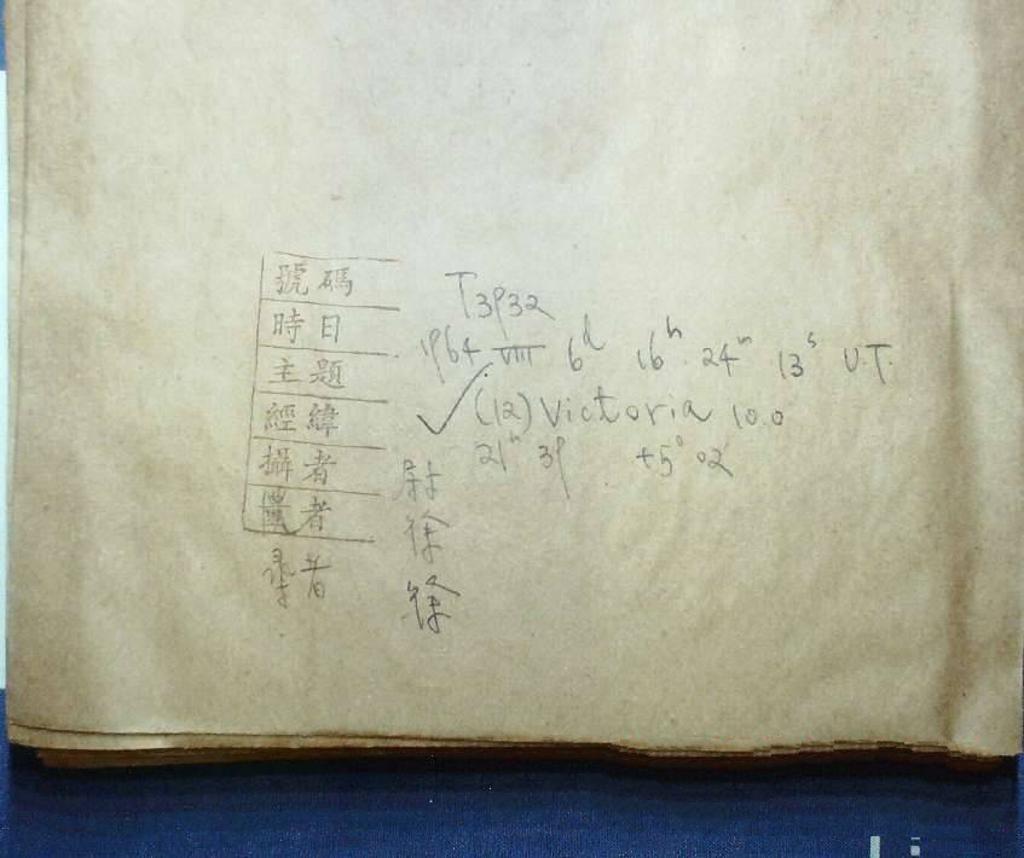 號碼 T3932
時日 1964 VIII 6d 16h 24m 13s U.T.
主題 ✓ (12) Victoria 10.0
經緯 21h 39 +5° 02'
攝者
者 徐
者 徐